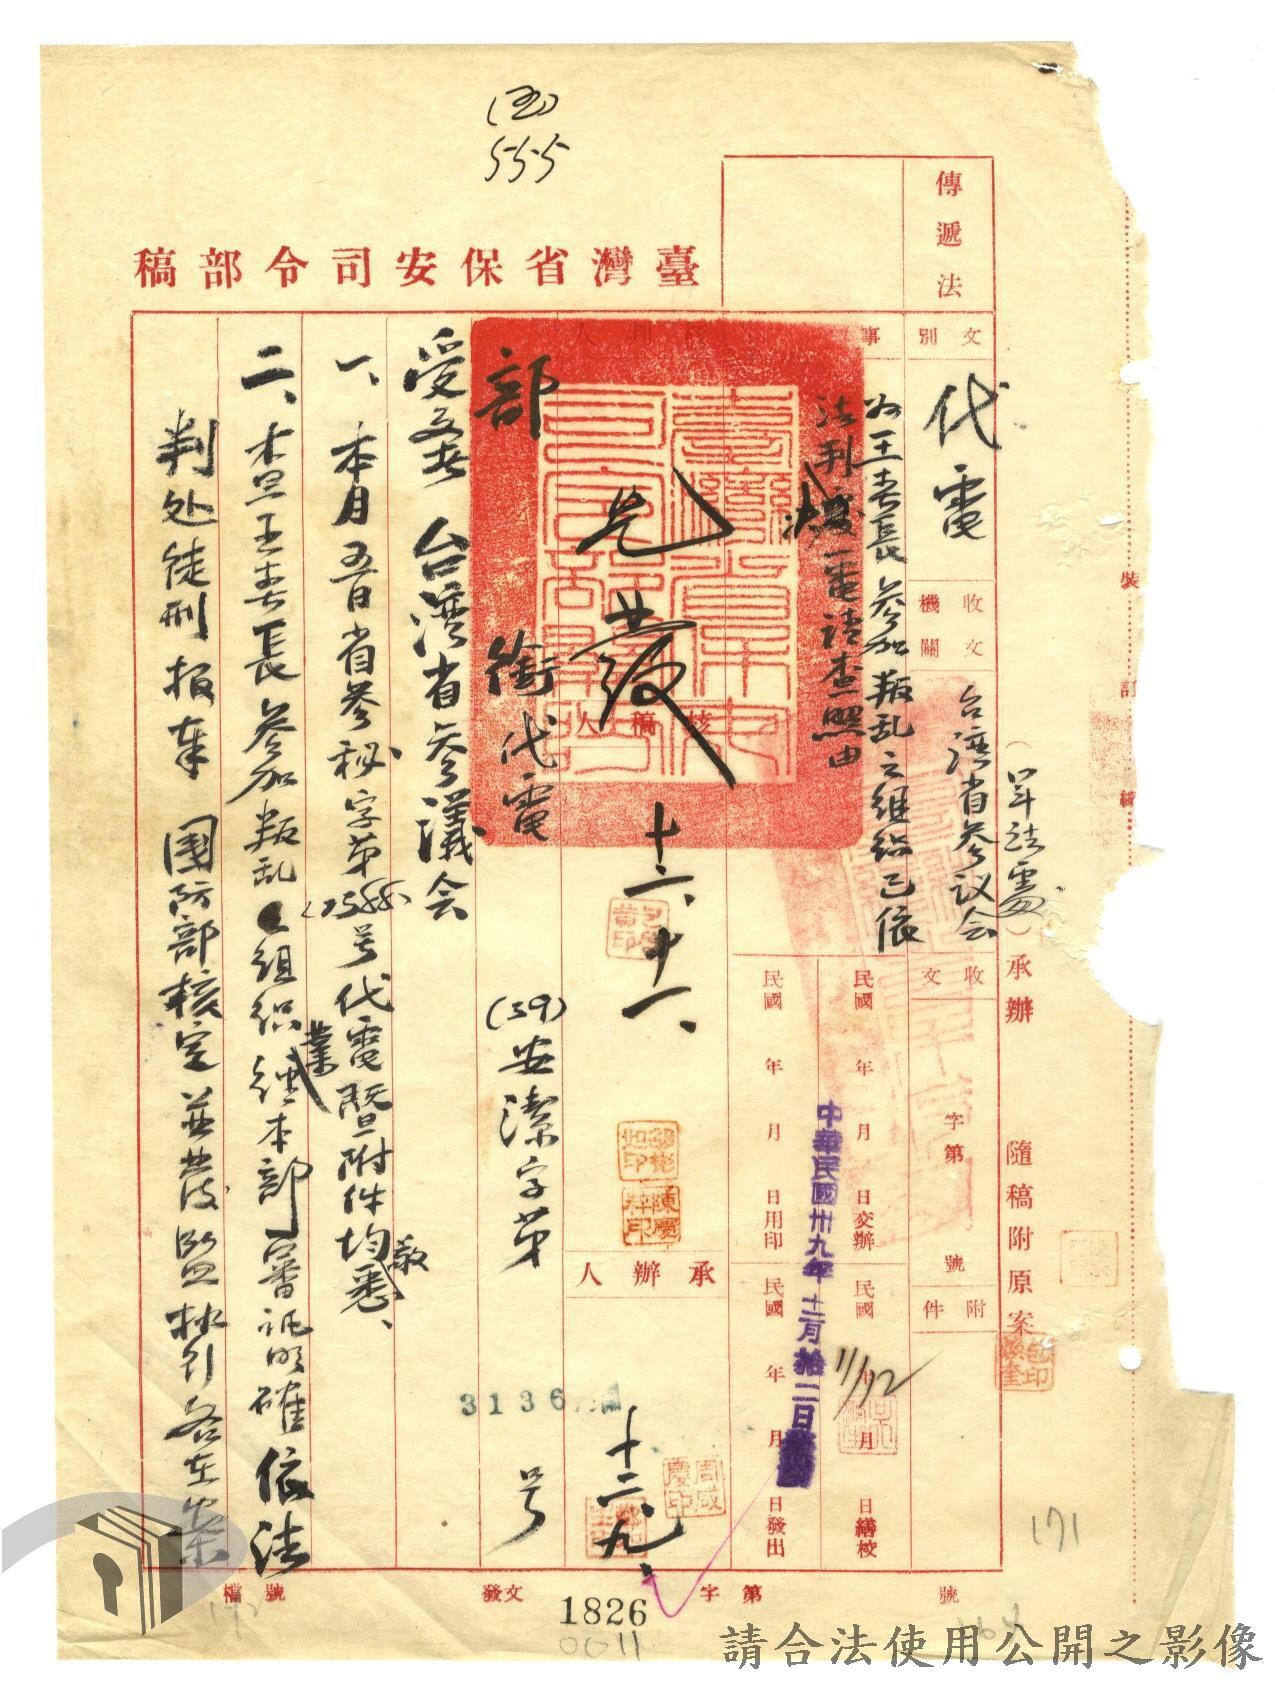 (五)
555
傳遞法
臺灣省保安司令部稿
(軍法處)承辦 隨稿附原案
文別
代電
收文機關
台灣省參議会
收文
字第
號
附件
事
为王春長參加叛乱之組織已依
法判決電請查照由
判人
先發
核稿人
十二、十一、
承辦人
十二、九、
民國 年 月 日交辦
民國 年 月 日繕校
11/12
民國 年 月 日用印
民國 年 月 日發出
中華民國卅九年十二月拾二日
部銜代電 (39)安潔字第
3136
号
受文者 台灣省參議会
一、本月五日省參秘字第
号代電暨附件均敬悉、
二、查王春長參加叛乱組織業經本部審訊明確依法
判处徒刑报奉 國防部核定並發監执行各在案
檔號
發文 字第 號
1826
0011
171
172
裝
訂
線
周咸慶印
請合法使用公開之影像